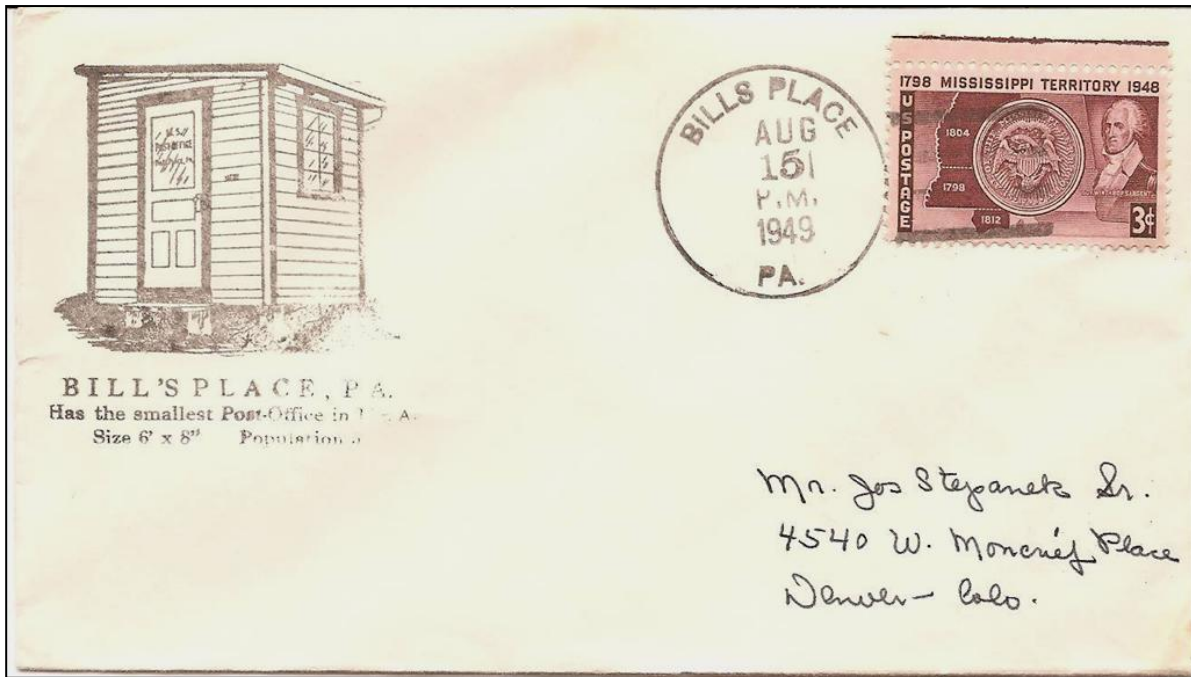 U.S.
POST-OFFICE
BILL'S PLACE, PA.
Has the smallest Post-Office in
Size 6' x 8" Population
BILLS PLACE
AUG
15
P.M.
1949
PA.
1798 MISSISSIPPI TERRITORY 1948
US POSTAGE
1804
1798
1812
SARGENT
3¢
Mr. Jos Stepanek Sr.
4540 W. Moncrief Place
Denver - Colo.